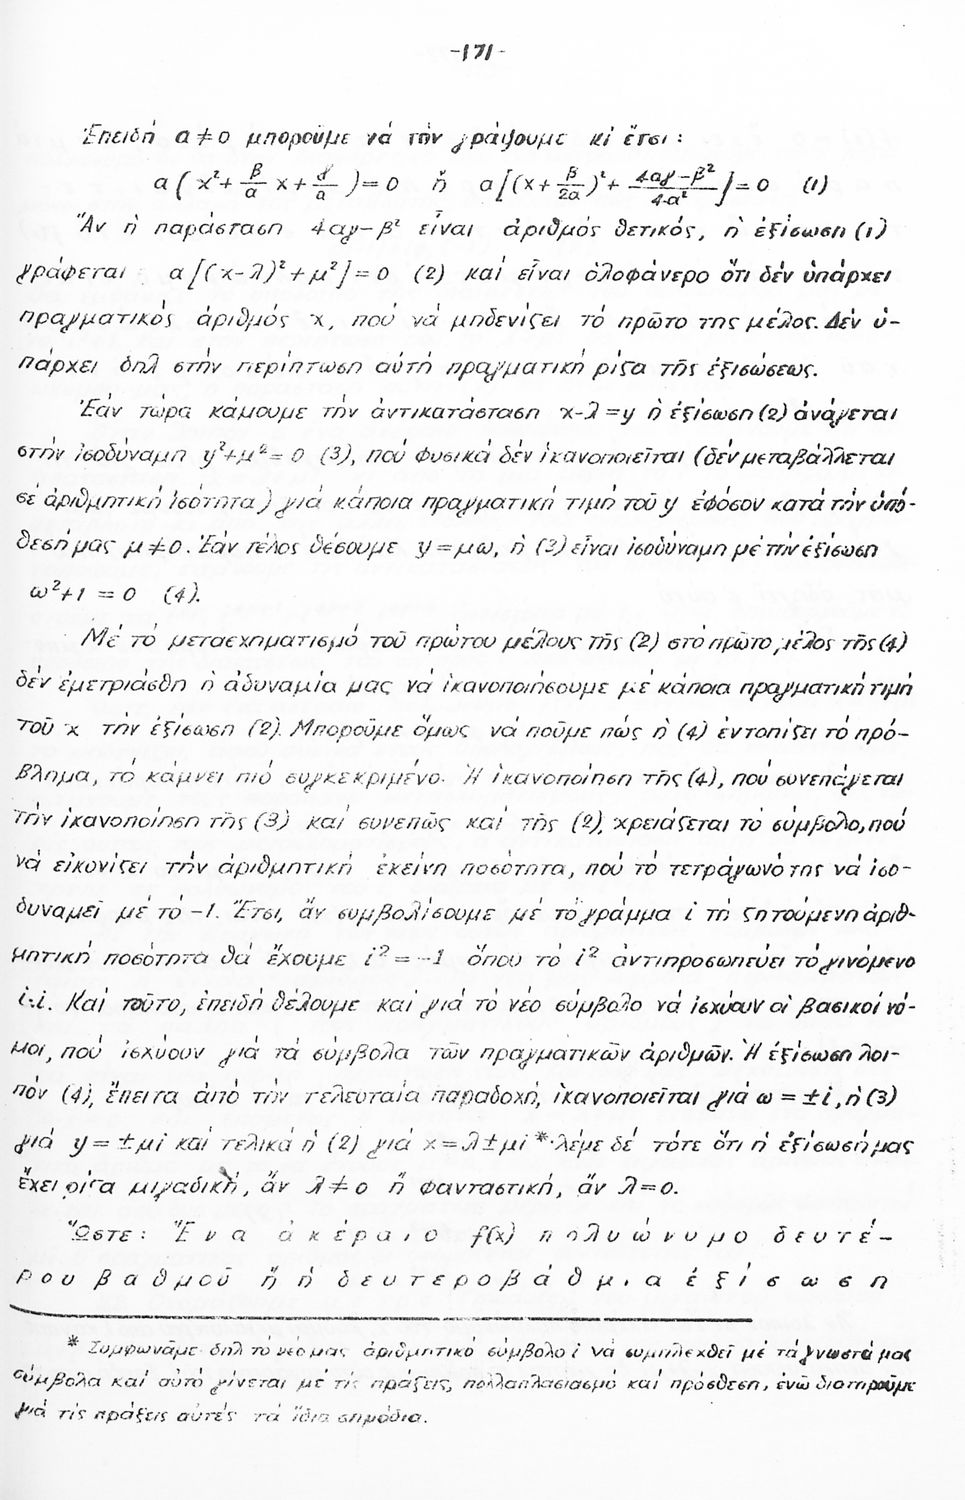 -171-
Ἐπειδή α≠0 μποροῦμε νά τήν γράψουμε κί ἔτσι :
α ( x²+ β/α x + γ/α ) = 0 ἤ α[(x + β/2α)² + 4αγ-β²/4α² ] = 0 (1)
Ἄν ἡ παράσταση 4αγ-β² εἶναι ἀριθμός θετικός, ἡ ἐξίσωση (1)
γράφεται α[(x-λ)²+μ²]=0 (2) καί εἶναι ὁλοφάνερο ὅτι δέν ὑπάρχει
πραγματικός ἀριθμός x, πού νά μηδενίζει τό πρῶτο της μέλος. Δέν ὑ-
πάρχει δηλ στήν περίπτωση αὐτή πραγματική ρίζα τῆς ἐξισώσεως.
Ἐάν τώρα κάμουμε τήν ἀντικατάσταση x-λ=y ἡ ἐξίσωση (2) ἀνάγεται
στήν ἰσοδύναμη y²+μ²=0 (3), πού φυσικά δέν ἱκανοποιεῖται (δέν μεταβάλλεται
σέ ἀριθμητική ἰσότητα) γιά κάποια πραγματική τιμή τοῦ y ἐφόσον κατά τήν ὑπό-
θεσή μας μ≠0. Ἐάν τέλος θέσουμε y=μω, ἡ (3) εἶναι ἰσοδύναμη μέ τήν ἐξίσωση
ω²+1=0 (4).
Μέ τό μετασχηματισμό τοῦ πρώτου μέλους τῆς (2) στό πρῶτο μέλος τῆς (4)
δέν ἐμετριάσθη ἡ ἀδυναμία μας νά ἱκανοποιήσουμε μέ κάποια πραγματική τιμή
τοῦ x τήν ἐξίσωση (2). Μποροῦμε ὅμως νά ποῦμε πώς ἡ (4) ἐντοπίζει τό πρό-
βλημα, τό κάμνει πιό συγκεκριμένο. Ἡ ἱκανοποίηση τῆς (4), πού συνεπάγεται
τήν ἱκανοποίηση τῆς (3) καί συνεπῶς καί τῆς (2), χρειάζεται τό σύμβολο, πού
νά εἰκονίζει τήν ἀριθμητική ἐκείνη ποσότητα, πού τό τετράγωνό της νά ἰσο-
δυναμεῖ μέ τό -1. Ἔτσι, ἄν συμβολίσουμε μέ τό γράμμα i τή ζητούμενη ἀριθ-
μητική ποσότητα θά ἔχουμε i² = -1 ὅπου τό i² ἀντιπροσωπεύει τό γινόμενο
i·i. Καί τοῦτο, ἐπειδή θέλουμε καί γιά τό νέο σύμβολο νά ἰσχύουν οἱ βασικοί νό-
μοι, πού ἰσχύουν γιά τά σύμβολα τῶν πραγματικῶν ἀριθμῶν. Ἡ ἐξίσωση λοι-
πόν (4), ἔπειτα ἀπό τήν τελευταία παραδοχή, ἱκανοποιεῖται γιά ω = ±i, ἡ (3)
γιά y = ±μi καί τελικά ἡ (2) γιά x = λ±μi *· λέμε δέ τότε ὅτι ἡ ἐξίσωσή μας
ἔχει ρίζα μιγαδική, ἄν λ≠0 ἤ φανταστική, ἄν λ=0.
Ὥστε: Ἕνα ἀκέραιο f(x) πολυώνυμο δευτέ-
ρου βαθμοῦ ἤ ἡ δευτεροβάθμια ἐξίσωση
* Συμφωνᾶμε δηλ τό νέο μας ἀριθμητικό σύμβολο i νά συμπλεχθεῖ μέ τά γνωστά μας
σύμβολα καί αὐτό γίνεται μέ τίς πράξεις, πολλαπλασιασμό καί πρόσθεση, ἐνῶ διατηροῦμε
γιά τίς πράξεις αὐτές τά ἴδια σημάδια.